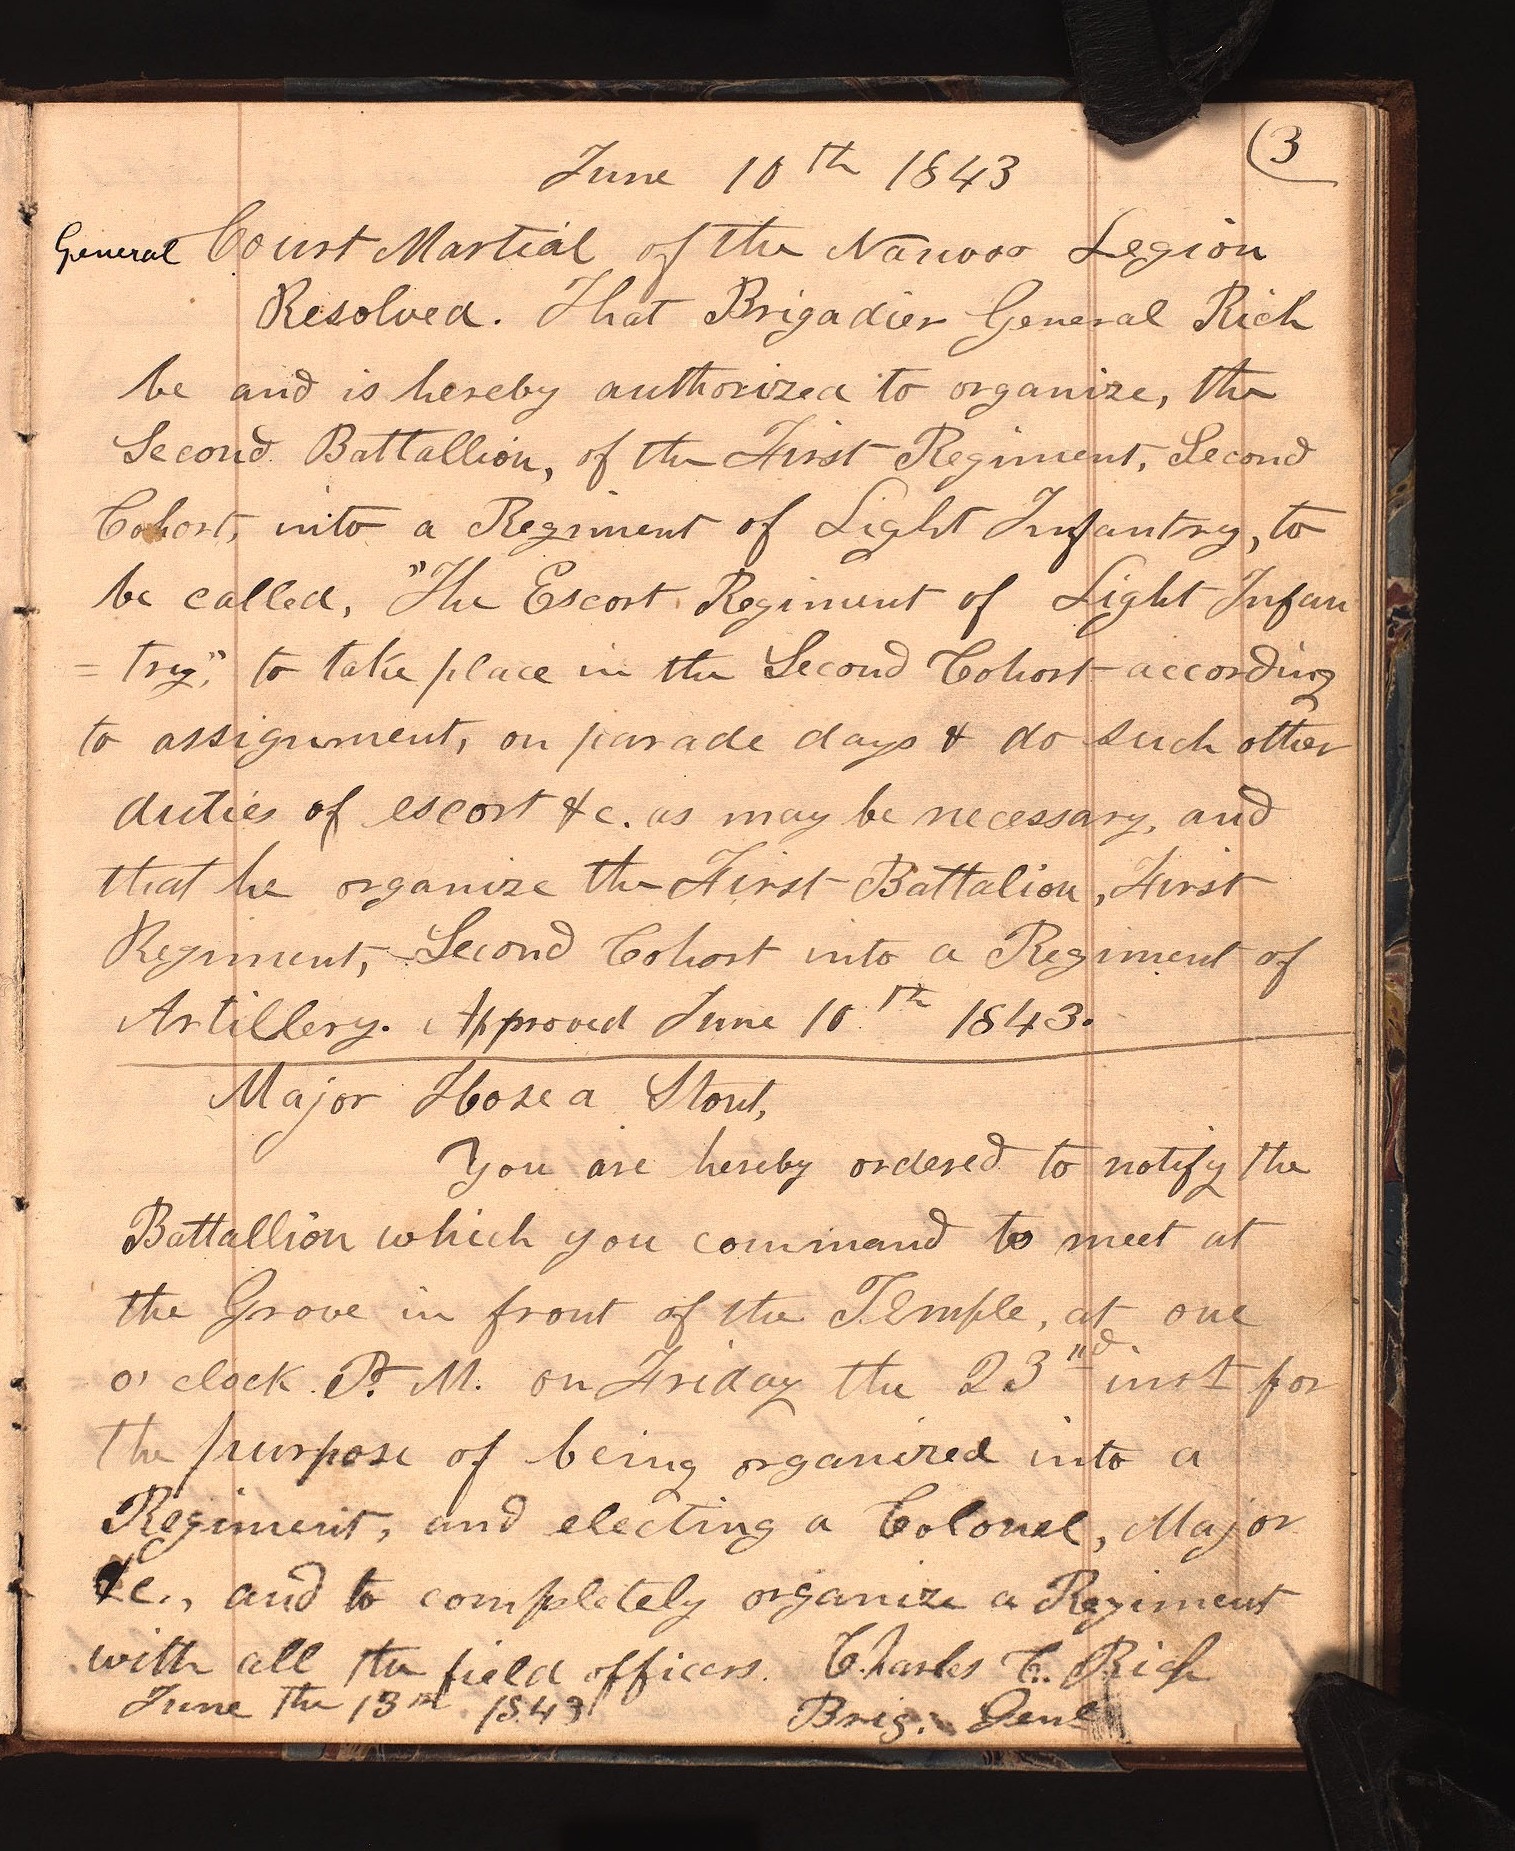 (3
June 10th 1843
General Court Martial of the Nauvoo Legion
Resolved. That Brigadier General Rich
be and is hereby authorized to organize, the
Second Battallion, of the First Regiment, Second
Cohort, into a Regiment of Light Infantry, to
be called, "The Escort Regiment of Light Infan
= try," to take place in the Second Cohort according
to assignment, on parade days & do such other
duties of escort &c. as may be necessary, and
that he organize the First Battalion, First
Regiment, Second Cohort into a Regiment of
Artillery. Approved June 10th 1843.
Major Hosea Stout,
You are hereby ordered to notify the
Battallion which you command to meet at
the Grove in front of the Temple, at one
o' clock P. M. on Friday the 23nd inst for
the purpose of being organized into a
Regiment, and electing a Colonel, Major
&c., and to completely organize a Regiment
with all the field officers. Charles C. Rich
June the 13th 1843 Brig. Genl